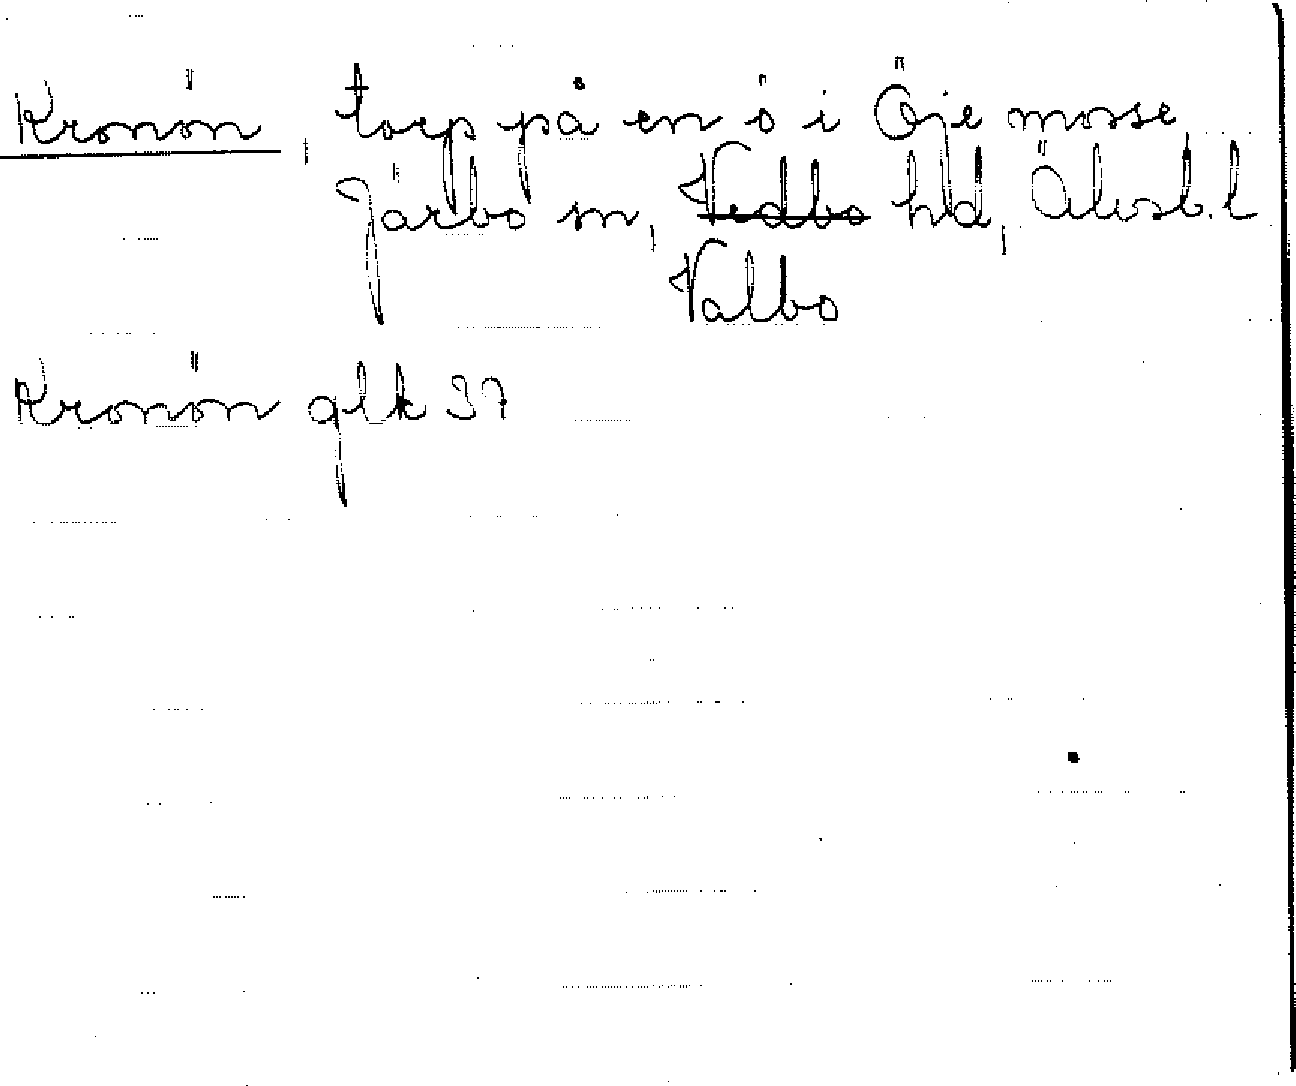 Kronön, torp på en ö i Öje mosse
Järbo sn, Vedbo hd, Älvsb. l
Valbo
Kronön glk 37